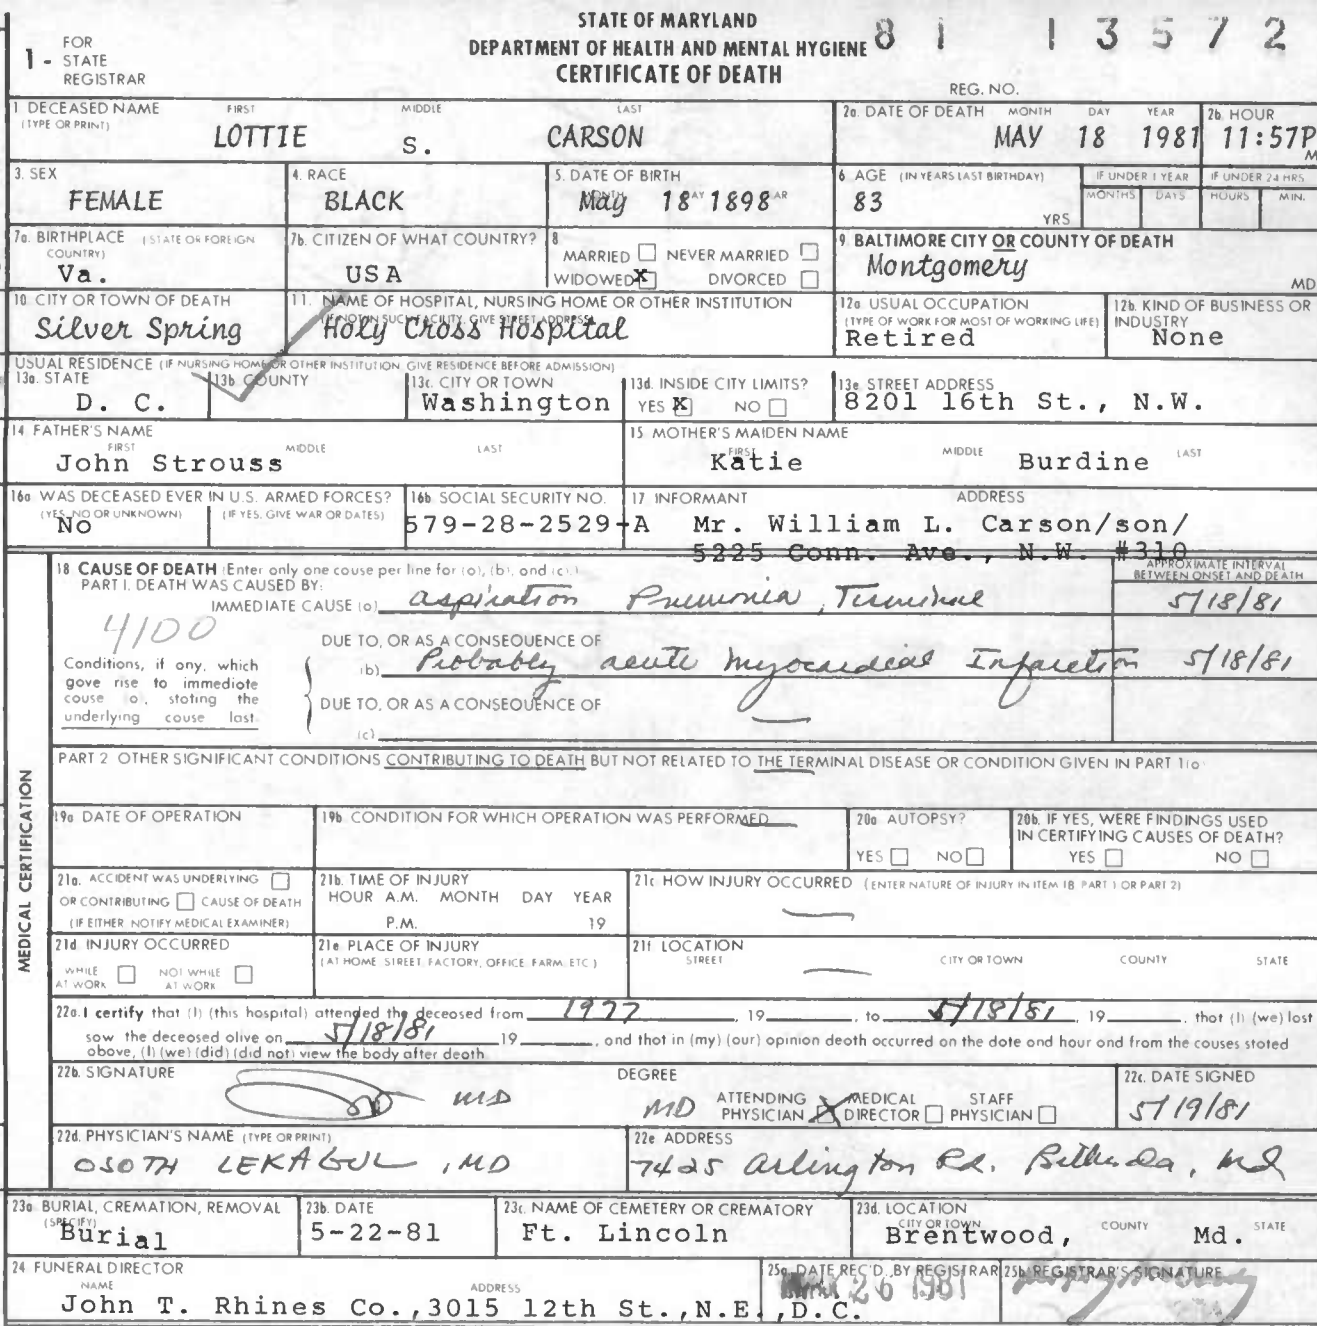 STATE OF MARYLAND
DEPARTMENT OF HEALTH AND MENTAL HYGIENE
CERTIFICATE OF DEATH
81 13572
REG. NO.
1 - FOR
STATE
REGISTRAR
1 DECEASED NAME FIRST MIDDLE LAST
(TYPE OR PRINT)
LOTTIE S. CARSON
2a. DATE OF DEATH MONTH DAY YEAR
MAY 18 1981
2b. HOUR
11:57P
M
3. SEX
FEMALE
4. RACE
BLACK
5. DATE OF BIRTH
May 18 1898
6 AGE (IN YEARS LAST BIRTHDAY)
83
YRS
IF UNDER 1 YEAR
MONTHS DAYS
IF UNDER 24 HRS
HOURS MIN.
7a. BIRTHPLACE (STATE OR FOREIGN
COUNTRY)
Va.
7b. CITIZEN OF WHAT COUNTRY?
USA
8
MARRIED NEVER MARRIED
WIDOWED X DIVORCED
9. BALTIMORE CITY OR COUNTY OF DEATH
Montgomery
MD
10. CITY OR TOWN OF DEATH
Silver Spring
11. NAME OF HOSPITAL, NURSING HOME OR OTHER INSTITUTION
(IF NOT IN SUCH FACILITY, GIVE STREET ADDRESS)
Holy Cross Hospital
12a. USUAL OCCUPATION
(TYPE OF WORK FOR MOST OF WORKING LIFE)
Retired
12b. KIND OF BUSINESS OR
INDUSTRY
None
USUAL RESIDENCE (IF NURSING HOME OR OTHER INSTITUTION, GIVE RESIDENCE BEFORE ADMISSION)
13a. STATE
D. C.
13b. COUNTY
13c. CITY OR TOWN
Washington
13d. INSIDE CITY LIMITS?
YES X NO
13e. STREET ADDRESS
8201 16th St., N.W.
14. FATHER'S NAME
FIRST MIDDLE LAST
John Strouss
15. MOTHER'S MAIDEN NAME
FIRST MIDDLE LAST
Katie Burdine
16a WAS DECEASED EVER IN U.S. ARMED FORCES?
(YES, NO OR UNKNOWN) (IF YES, GIVE WAR OR DATES)
No
16b. SOCIAL SECURITY NO.
579-28-2529-A
17. INFORMANT ADDRESS
Mr. William L. Carson/son/
5225 Conn. Ave., N.W. #310
MEDICAL CERTIFICATION
18 CAUSE OF DEATH (Enter only one cause per line for (a), (b), and (c).)
PART I. DEATH WAS CAUSED BY:
APPROXIMATE INTERVAL
BETWEEN ONSET AND DEATH
IMMEDIATE CAUSE (a) aspiration Pneumonia, Terminal 5/18/81
4100
DUE TO, OR AS A CONSEQUENCE OF
(b) Probably acute myocardial Infarction 5/18/81
Conditions, if any, which
gave rise to immediate
cause (a), stating the
underlying cause last.
DUE TO, OR AS A CONSEQUENCE OF
(c)
PART 2 OTHER SIGNIFICANT CONDITIONS CONTRIBUTING TO DEATH BUT NOT RELATED TO THE TERMINAL DISEASE OR CONDITION GIVEN IN PART 1(a)
19a DATE OF OPERATION
19b CONDITION FOR WHICH OPERATION WAS PERFORMED
20a AUTOPSY?
YES NO
20b. IF YES, WERE FINDINGS USED
IN CERTIFYING CAUSES OF DEATH?
YES NO
21a. ACCIDENT WAS UNDERLYING
OR CONTRIBUTING CAUSE OF DEATH
(IF EITHER NOTIFY MEDICAL EXAMINER)
21b. TIME OF INJURY
HOUR A.M. MONTH DAY YEAR
P.M. 19
21c. HOW INJURY OCCURRED (ENTER NATURE OF INJURY IN ITEM 18 PART 1 OR PART 2)
21d. INJURY OCCURRED
WHILE AT WORK NOT WHILE AT WORK
21e. PLACE OF INJURY
(AT HOME STREET, FACTORY, OFFICE, FARM, ETC.)
21f. LOCATION
STREET CITY OR TOWN COUNTY STATE
22a. I certify that (I) (this hospital) attended the deceased from 1977, 19 , to 5/18/81, 19 , that (I) (we) last
saw the deceased alive on 5/18/81 19 , and that in (my) (our) opinion death occurred on the date and hour and from the causes stated
above, (I) (we) (did) (did not) view the body after death
22b. SIGNATURE
MD
DEGREE
MD
ATTENDING PHYSICIAN X MEDICAL DIRECTOR STAFF PHYSICIAN
22c. DATE SIGNED
5/19/81
22d. PHYSICIAN'S NAME (TYPE OR PRINT)
OSOTH LEKAGUL, MD
22e. ADDRESS
7425 Arlington Rd. Bethesda, Md
23a. BURIAL, CREMATION, REMOVAL
(SPECIFY)
Burial
23b. DATE
5-22-81
23c. NAME OF CEMETERY OR CREMATORY
Ft. Lincoln
23d. LOCATION
CITY OR TOWN COUNTY STATE
Brentwood, Md.
24 FUNERAL DIRECTOR
NAME ADDRESS
John T. Rhines Co.,3015 12th St.,N.E.,D.C.
25a. DATE REC'D. BY REGISTRAR
26 1981
25b. REGISTRAR'S SIGNATURE